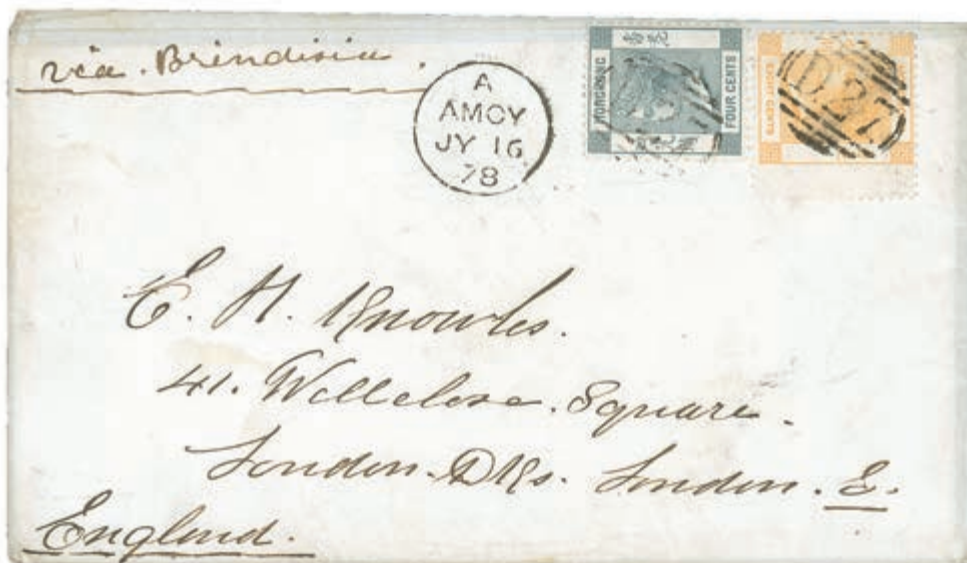 via. Brindisia.
A
AMOY
JY 16
78
HONG KONG
FOUR CENTS
D.27
E. H. Knowles.
41. Wellclose. Square.
London. DKs. London. E.
England.